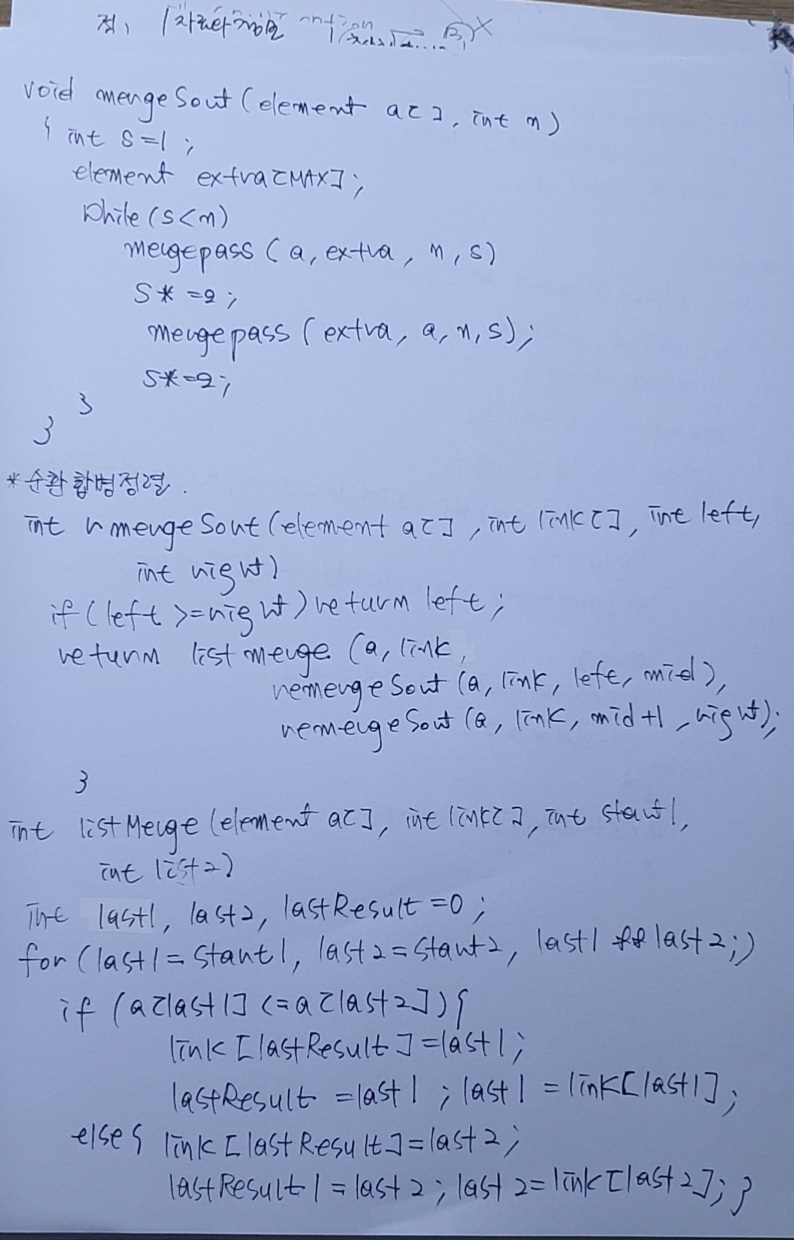 void mergeSort(element a[], int n)
{ int s=1;
element extra[MAX];
While(s<n)
mergepass(a, extra, n, s)
S*=2;
mergepass(extra, a, n, s);
S*=2;
}
}
*순환 합병정렬.
int rmergeSort(element a[], int link[], int left,
int right)
if(left>=right)return left;
return listmerge(a, link,
remergeSort(a, link, left, mid),
remergeSort(a, link, mid+1, right);
}
int listMerge(element a[], int link[], int start1,
int list2)
int last1, last2, lastResult=0;
for(last1=start1, last2=start2, last1 && last2;)
if(a[last1]<=a[last2]){
link[lastResult]=last1;
lastResult=last1; last1=link[last1];
else{ link[lastResult]=last2;
lastResult1=last2; last2=link[last2];}